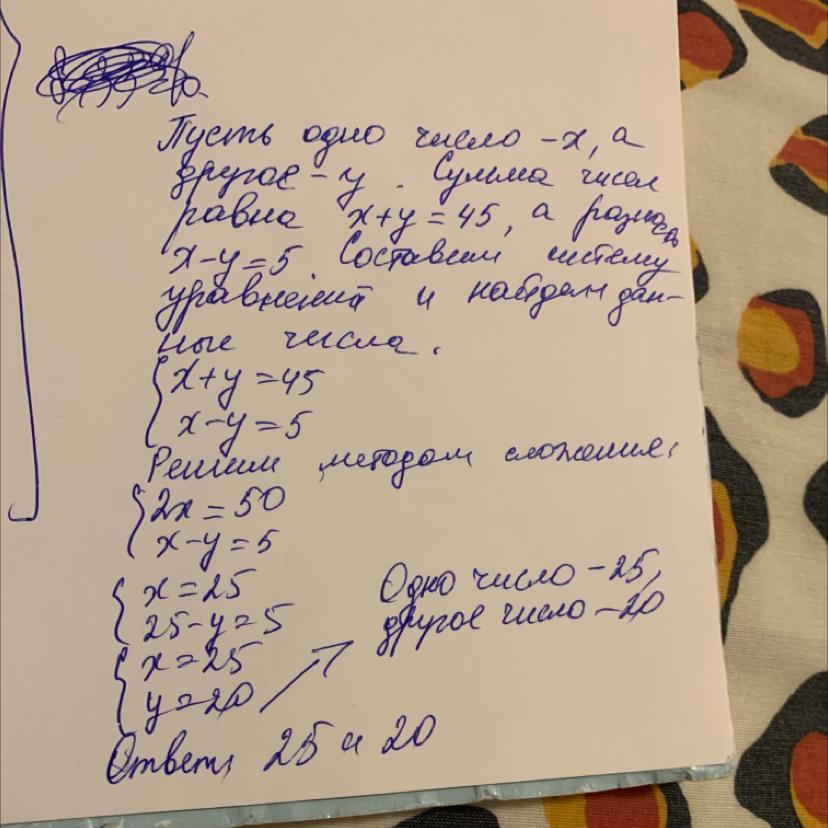 Пусть одно число – x, а
другое – y. Сумма чисел
равна x+y=45, а разность
x-y=5. Составим систему
уравнений и найдем дан-
ные числа.
{ x+y=45
x-y=5
Решим методом сложения:
{ 2x=50
x-y=5
{ x=25
25-y=5
{ x=25
y=20
Одно число – 25,
другое число – 20
Ответ: 25 и 20